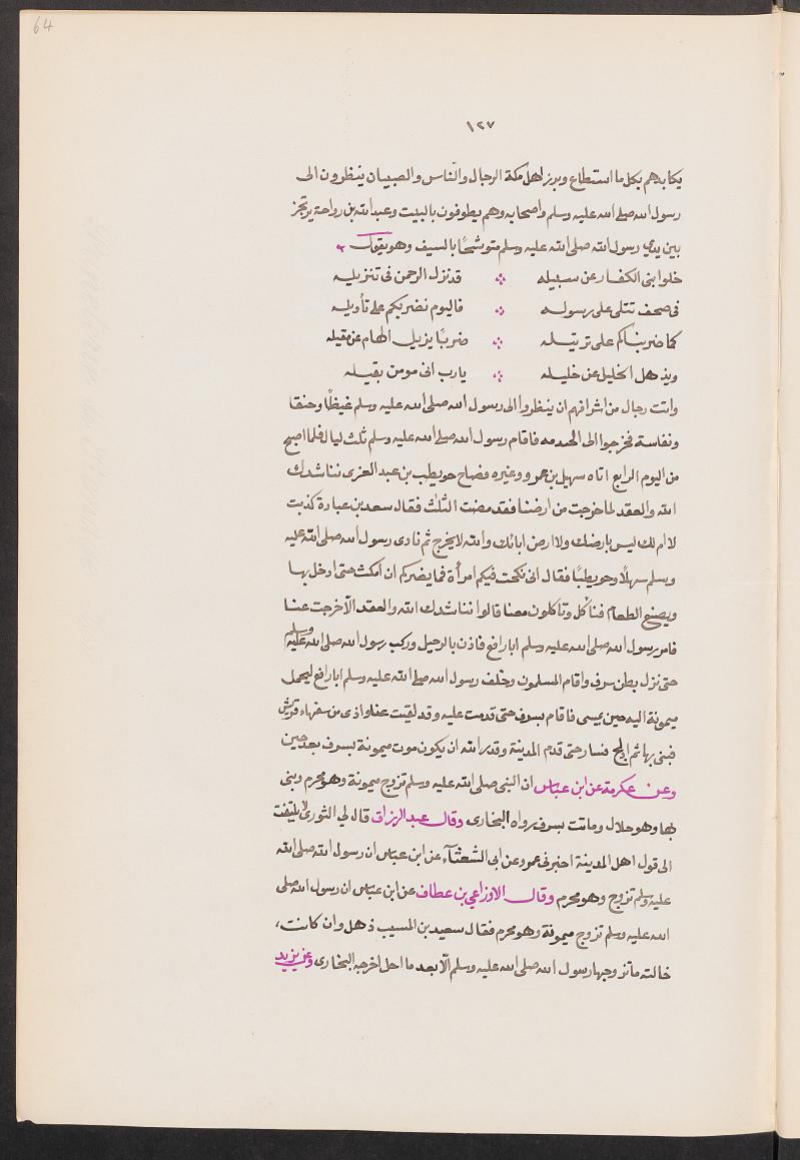 64
١٢٧
يكايدهم بكل ما استطاع وبرز اهل مكة الرجال والنّاس والصبيان ينظرون الى
رسول الله صلى الله عليه وسلم واصحابه وهم يطوفون بالبيت وعبد الله بن رواحة يرتجز
بين يدي رسول الله صلى الله عليه وسلم متوشحًا بالسيف وهو يقول
خلوا بنى الكفار عن سبيله قد نزل الرحمن فى تنزيله
فى صحف تتلى على رسوله فاليوم نضربكم على تأويله
كما ضربناكم على ترتيله ضربًا يزيل الهام عن مقيله
ويذهل الخليل عن خليله يارب انى مومن بقيله
وانت رجال من اشرافهم ان ينظروا الى رسول الله صلى الله عليه وسلم غيظًا وحنقا
ونفاسة فخرجوا الى الخندمه فاقام رسول الله صلى الله عليه وسلم ثلث ليال فلما اصبح
من اليوم الرابع اتاه سهيل بن عمرو وغيره فصاح حويطب بن عبد العزى نناشدك
الله والعقد لما خرجت من ارضنا فقد مضت الثلث فقال سعد بن عبادة كذبت
لا ام لك ليس بارضك ولا ارض ابائك والله لا يخرج ثم نادى رسول الله صلى الله عليه
وسلم سهلًا وحويطبًا فقال انى نكحت فيكم امرأة فما يضركم ان امكث حتى ادخل بها
ويصنع الطعام فنأكل وتأكلون معنا قالوا نناشدك الله والعقد الّا خرجت عنا
فامر رسول الله صلى الله عليه وسلم ابا رافع فاذن بالرحيل وركب رسول الله صلى الله عليه وسلم
حتى نزل بطن سرف واقام المسلمون وخلف رسول الله صلى الله عليه وسلم ابا رافع ليحمل
ميمونة اليه حين يمسى فاقام بسرف حتى قدمت عليه وقد لقيت عنا واذى من سفهاء قريش
فبنى بها ثم ادلج فسار حتى قدم المدينة وقدر الله ان يكون موت ميمونة بسرف بعد حين
وعن عكرمة عن ابن عباس ان النبى صلى الله عليه وسلم تزوج ميمونة وهو محرم وبنى
بها وهو حلال وماتت بسرف رواه البخارى وقال عبد الرزاق قال لي الثورى لا يلتفت
الى قول اهل المدينة اخبرنى عمرو عن ابى الشعثآء عن ابن عباس ان رسول الله صلى الله
عليه وسلم تزوج وهو محرم وقال الاوزاعي بن عطاف عن ابن عباس ان رسول الله صلى
الله عليه وسلم تزوج ميمونة وهو محرم فقال سعيد بن المسيب ذهل وان كانت،
خالته ما تزوجها رسول الله صلى الله عليه وسلم الّا بعد ما احل اخرجه البخارى وعن يزيد